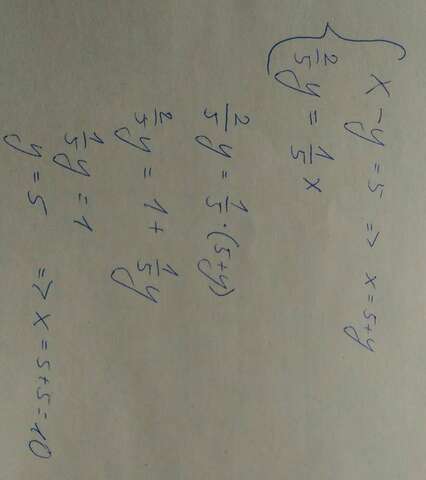 x - y = 5 => x = 5+y
2/5 y = 1/5 x
2/5 y = 1/5 · (5+y)
2/5 y = 1 + 1/5 y
1/5 y = 1
y = 5 => x = 5+5 = 10